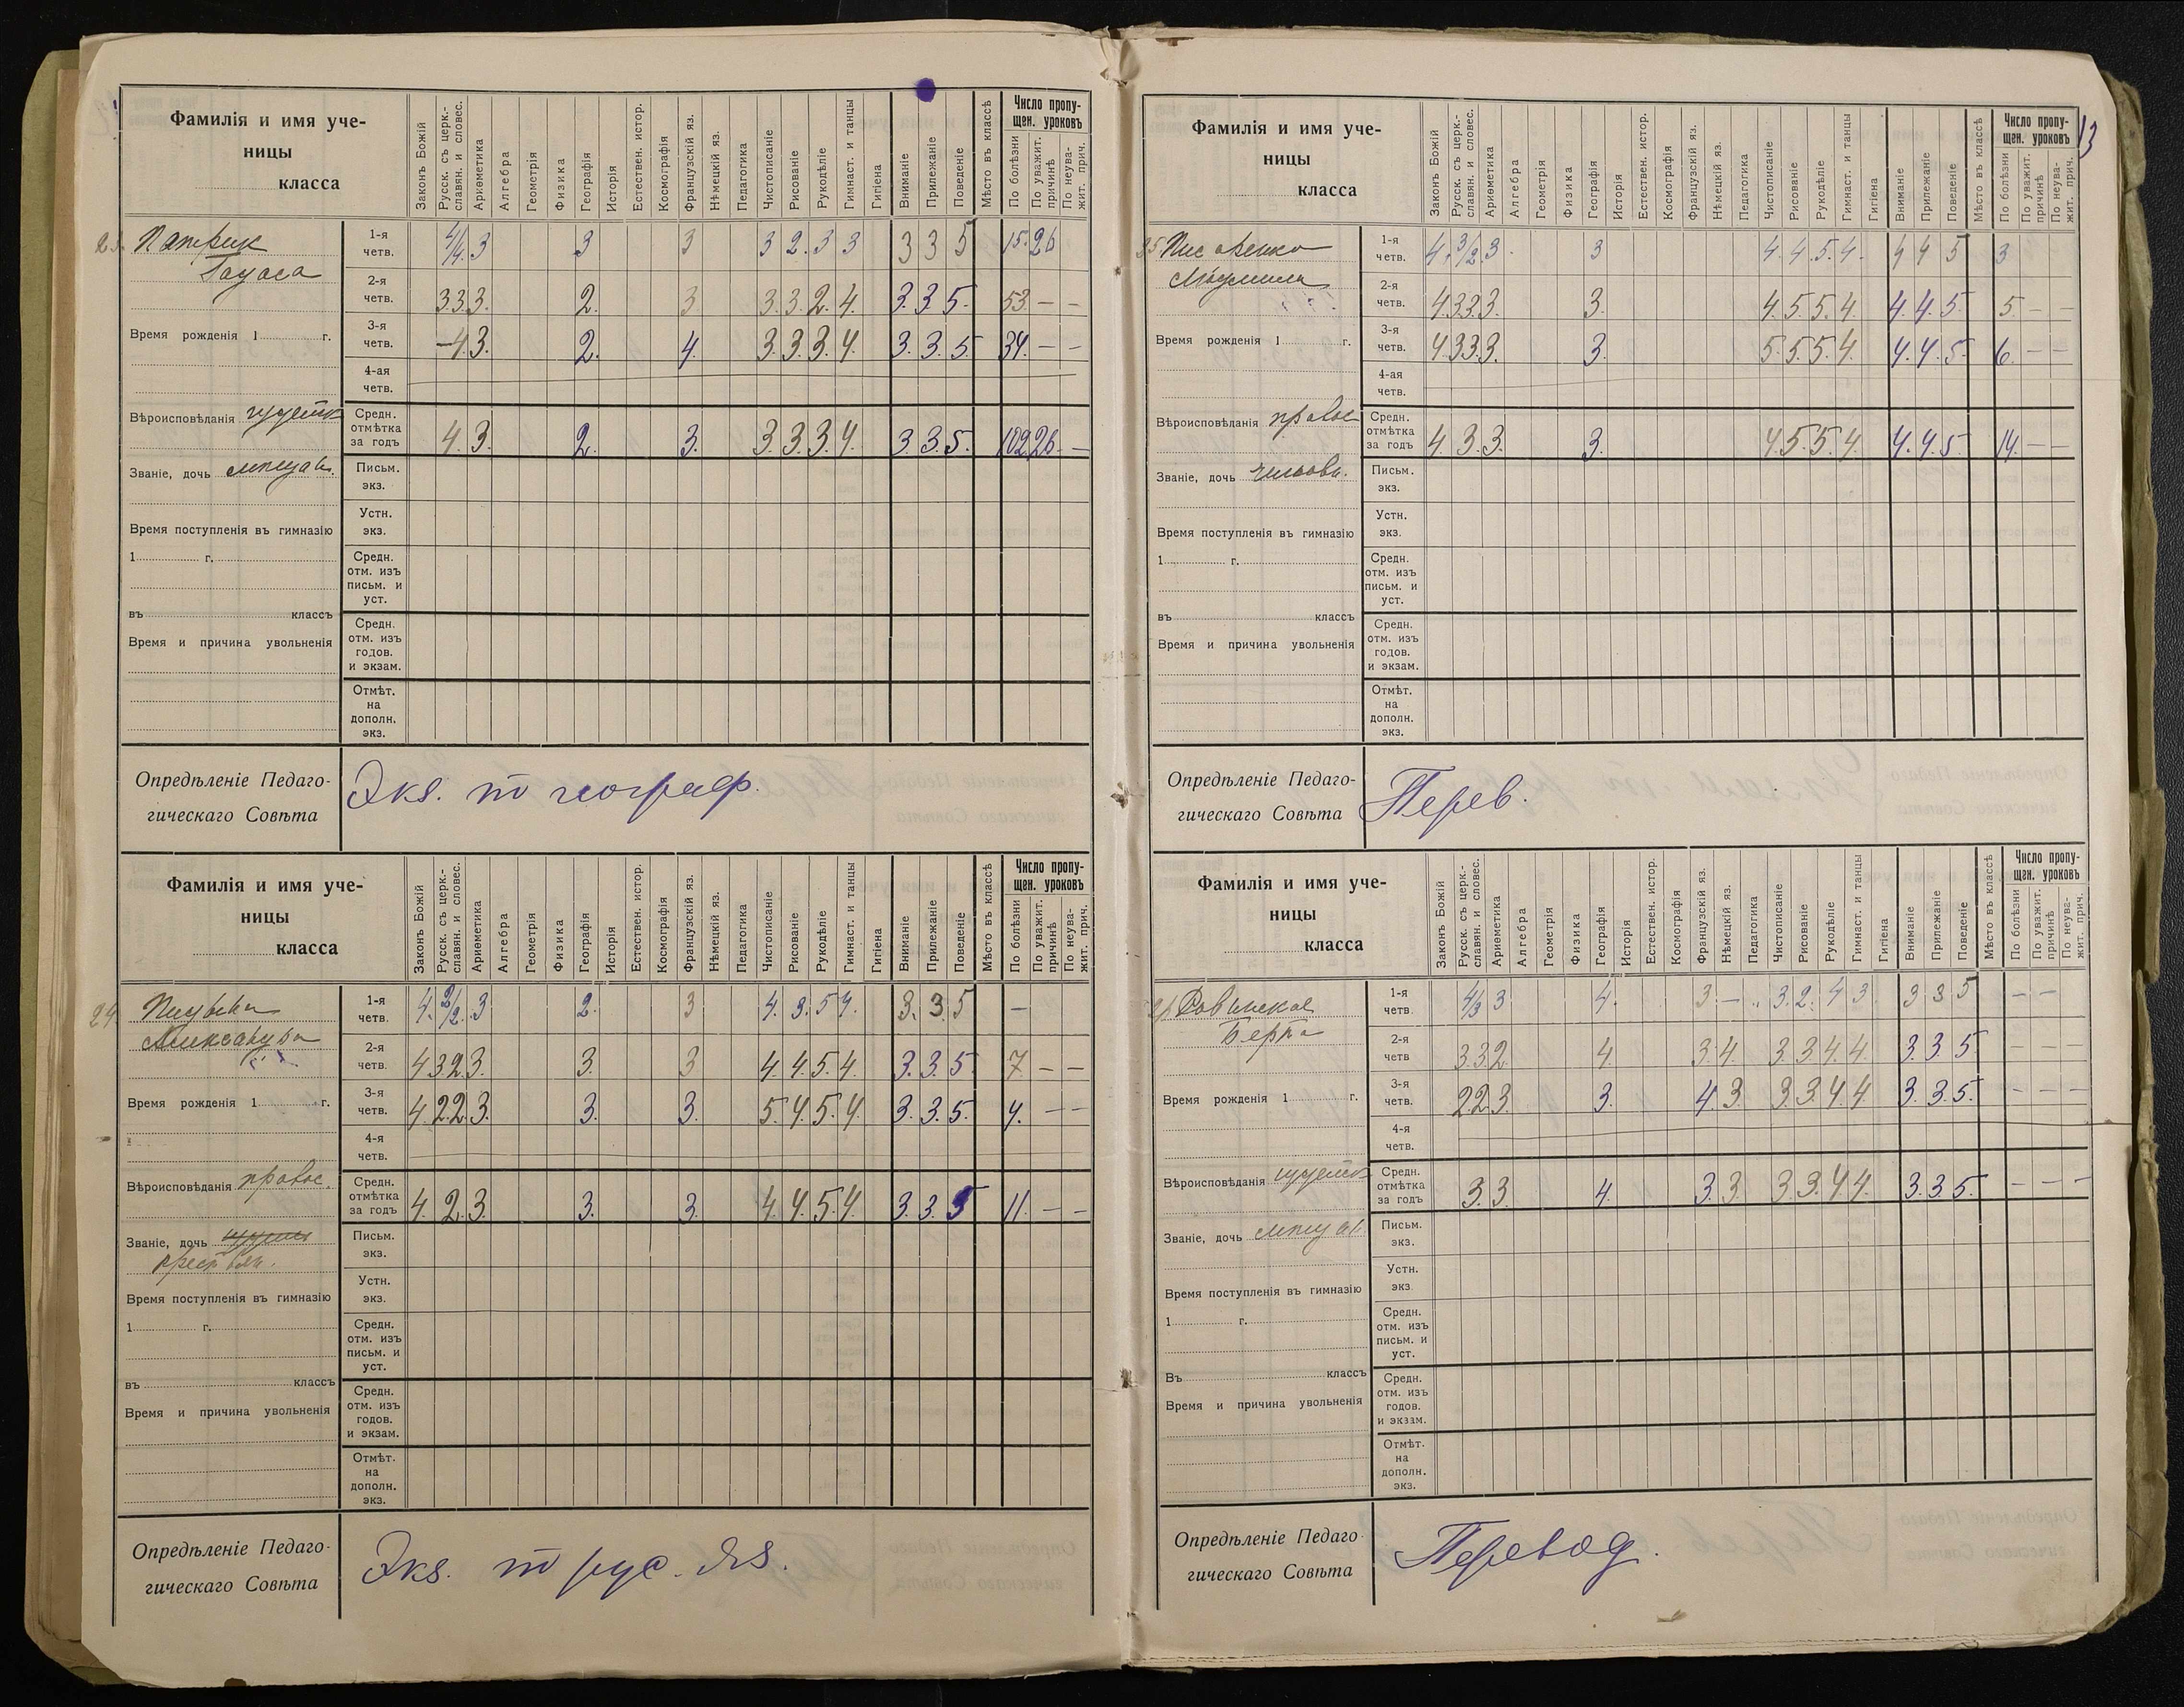 13
Фамилія и имя уче-
ницы
класса
Законъ Божій
Русск. съ церк.-
славян. и словес.
Ариѳметика
Алгебра
Геометрія
Физика
Географія
Исторія
Естествен. истор.
Космографія
Французскій яз.
Нѣмецкій яз.
Педагогика
Чистописаніе
Рисованіе
Рукодѣліе
Гимнаст. и танцы
Гигіена
Вниманіе
Прилежаніе
Поведеніе
Мѣсто въ классѣ
Число пропу-
щен. уроковъ
По болѣзни
По уважит.
причинѣ
По неува-
жит. прич.
23. Патрик
1-я четв. 4/4. 3 3 3 3 2. 3 3 3 3 5 15. 26
2-я четв. 3 3 3. 2. 3 3. 3. 2. 4. 3. 3. 5. 53 — —
Время рожденія 1 г.
3-я четв. — 4. 3. 2. 4. 3. 3. 3. 4. 3. 3. 5. 34. — —
4-ая четв.
Вѣроисповѣданія иудейск
Средн. отмѣтка за годъ 4. 3. 2. 3. 3. 3. 3. 4. 3. 3. 5. 102 26. —
Званіе, дочь мѣщан.
Письм. экз.
Устн. экз.
Время поступленія въ гимназію
1 г.
Средн. отм. изъ письм. и уст.
въ классъ
Время и причина увольненія
Средн. отм. изъ годов. и экзам.
Отмѣт. на дополн. экз.
Опредѣленіе Педаго-
гическаго Совѣта
Экз. по географ.
Фамилія и имя уче-
ницы
класса
Законъ Божій
Русск. съ церк.-
славян. и словес.
Ариѳметика
Алгебра
Геометрія
Физика
Географія
Исторія
Естествен. истор.
Космографія
Французскій яз.
Нѣмецкій яз.
Педагогика
Чистописаніе
Рисованіе
Рукодѣліе
Гимнаст. и танцы
Гигіена
Вниманіе
Прилежаніе
Поведеніе
Мѣсто въ классѣ
Число пропу-
щен. уроковъ
По болѣзни
По уважит.
причинѣ
По неува-
жит. прич.
24.
Александра
1-я четв. 4. 3/2. 3 2. 3 4. 3. 5 4. 3. 3. 5 —
2-я четв. 4 3 2. 3. 3. 3 4. 4. 5. 4. 3. 3. 5. 7. — —
Время рожденія 1 г.
3-я четв. 4. 2 2. 3. 3. 3. 5. 4. 5. 4. 3. 3. 5. 4. — —
4-я четв.
Вѣроисповѣданія правос.
Средн. отмѣтка за годъ 4. 2. 3. 3. 3. 4. 4. 5. 4. 3. 3. 5 11. — —
Званіе, дочь
крестьян.
Письм. экз.
Устн. экз.
Время поступленія въ гимназію
1 г.
Средн. отм. изъ письм. и уст.
въ классъ
Время и причина увольненія
Средн. отм. изъ годов. и экзам.
Отмѣт. на дополн. экз.
Опредѣленіе Педаго-
гическаго Совѣта
Экз. по рус. яз.
Фамилія и имя уче-
ницы
класса
Законъ Божій
Русск. съ церк.-
славян. и словес.
Ариѳметика
Алгебра
Геометрія
Физика
Географія
Исторія
Естествен. истор.
Космографія
Французскій яз.
Нѣмецкій яз.
Педагогика
Чистописаніе
Рисованіе
Рукодѣліе
Гимнаст. и танцы
Гигіена
Вниманіе
Прилежаніе
Поведеніе
Мѣсто въ классѣ
Число пропу-
щен. уроковъ
По болѣзни
По уважит.
причинѣ
По неува-
жит. прич.
25 Писаренко
Людмила
1-я четв. 4. 3/2. 3. 3 4. 4. 5. 4. 4 4 5 3
2-я четв. 4. 3 3. 3. 3. 4. 5. 5. 4. 4. 4. 5. 5. — —
Время рожденія 1 г.
3-я четв. 4. 3 3. 3. 3. 5. 5. 5. 4. 4. 4. 5. 6. — —
4-ая четв.
Вѣроисповѣданія правос
Средн. отмѣтка за годъ 4. 3. 3. 3. 4. 5. 5. 4. 4. 4. 5 14. — —
Званіе, дочь чиновн.
Письм. экз.
Устн. экз.
Время поступленія въ гимназію
1 г.
Средн. отм. изъ письм. и уст.
въ классъ
Время и причина увольненія
Средн. отм. изъ годов. и экзам.
Отмѣт. на дополн. экз.
Опредѣленіе Педаго-
гическаго Совѣта
Перев.
Фамилія и имя уче-
ницы
класса
Законъ Божій
Русск. съ церк.-
славян. и словес.
Ариѳметика
Алгебра
Геометрія
Физика
Географія
Исторія
Естествен. истор.
Космографія
Французскій яз.
Нѣмецкій яз.
Педагогика
Чистописаніе
Рисованіе
Рукодѣліе
Гимнаст. и танцы
Гигіена
Вниманіе
Прилежаніе
Поведеніе
Мѣсто въ классѣ
Число пропу-
щен. уроковъ
По болѣзни
По уважит.
причинѣ
По неува-
жит. прич.
Ровинская
Берта
1-я четв. 4/3 3 4. 3 — 3. 2. 4 3 3 3 5 — —
2-я четв 3 3 2 4. 3. 4. 3. 3 4. 4. 3. 3. 5. — — —
Время рожденія 1 г.
3-я четв. 2 2. 3. 3. 4. 3. 3. 3. 4. 4. 3. 3. 5. — — —
4-я четв.
Вѣроисповѣданія иудейск
Средн. отмѣтка за годъ 3. 3. 4. 3. 3. 3. 3. 4. 4. 3. 3. 5. — — —
Званіе, дочь мѣщан.
Письм. экз.
Устн. экз
Время поступленія въ гимназію
1 г.
Средн. отм. изъ письм. и уст.
Въ классъ
Время и причина увольненія
Средн. отм. изъ годов. и экзам.
Отмѣт. на дополн. экз.
Опредѣленіе Педаго-
гическаго Совѣта
Перевод.